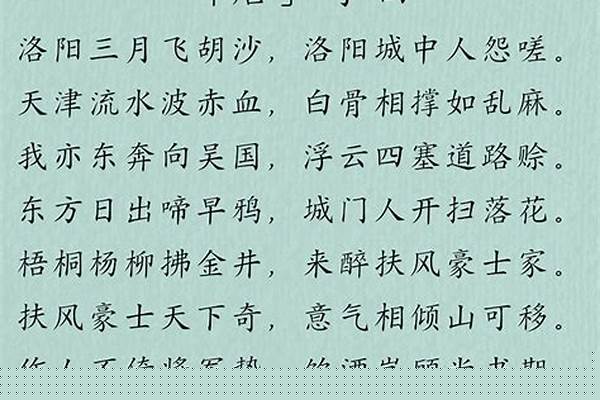 洛阳三月飞胡沙，洛阳城中人怨嗟。
天津流水波赤血，白骨相撑如乱麻。
我亦东奔向吴国，浮云四塞道路赊。
东方日出啼早鸦，城门人开扫落花。
梧桐杨柳拂金井，来醉扶风豪士家。
扶风豪士天下奇，意气相倾山可移。